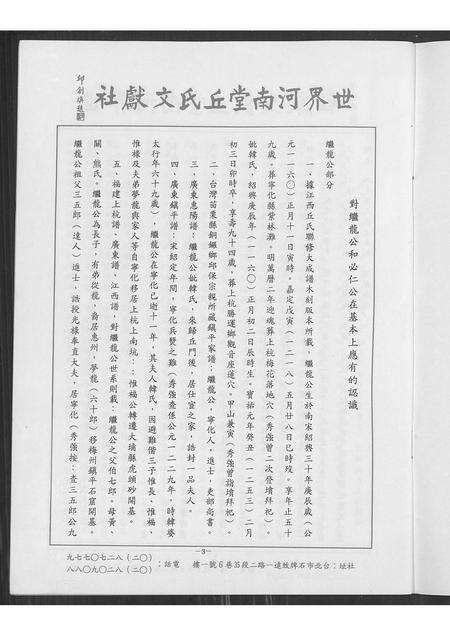 世界河南堂丘氏文獻社
邱創煥題
對繼龍公和必仁公在基本上應有的認識
繼龍公部分
一﹑據江西丘氏聯修大成譜木刻版本所載，繼龍公生於南宋紹興三十年庚辰歲（公
元一一六〇）正月十一日寅時。嘉定戊寅（一二一八）五月廿八日巳時歿。享年止五十
九歲。葬寧化縣紫林灘。明萬曆二年迎魂葬上杭梅花落地穴（秀強曾二次登墳拜祀）。
姚韓氏，紹興庚辰年（一一六〇）正月初二日辰時生。寶祐元年癸丑（一二五三）二月
初三日卯時卒，享壽九十四歲，葬上杭勝運鄉觀音座蓮穴。甲山兼寅（秀強曾詣墳拜祀）。
二﹑台灣苗栗縣銅鑼鄉邱保宗親所藏鎮平家譜：繼龍公，寧化人，進士，吏部尚書。
三﹑廣東惠陽譜：繼龍公妣韓氏，來歸丘門後，居仕宦之家，誥封一品夫人。
四﹑廣東鎮平譜：宋紹定年間，寧化兵燹之難（秀強查係公元一二二九年，時韓婆
太行年六十九歲），繼龍公在寧化已逝十一年，其夫人韓氏，因避難偕三子惟長、惟福、
惟祿及夫弟夢龍與家人等自寧化移居上杭上南坑。…：惟福公轉遷大埔縣虎頭砂開基。
五﹑福建上杭譜、廣東譜、江西譜，對繼龍公世系則載：繼龍公之父伯七郎。母黃、
關、熊氏。繼龍公為長子，有弟從龍，裔居惠州，夢龍（六十郎）移梅州鎮平石窟開基。
繼龍公祖父三五郎（達人）進士，誥授光祿奉直大夫，居寧化（秀強按：查三五郎公九
—3—
社址：台北市石牌致遠一路二段35巷6號一樓
電話：（〇二）八二七〇七七九
（〇二）八二〇九〇八八